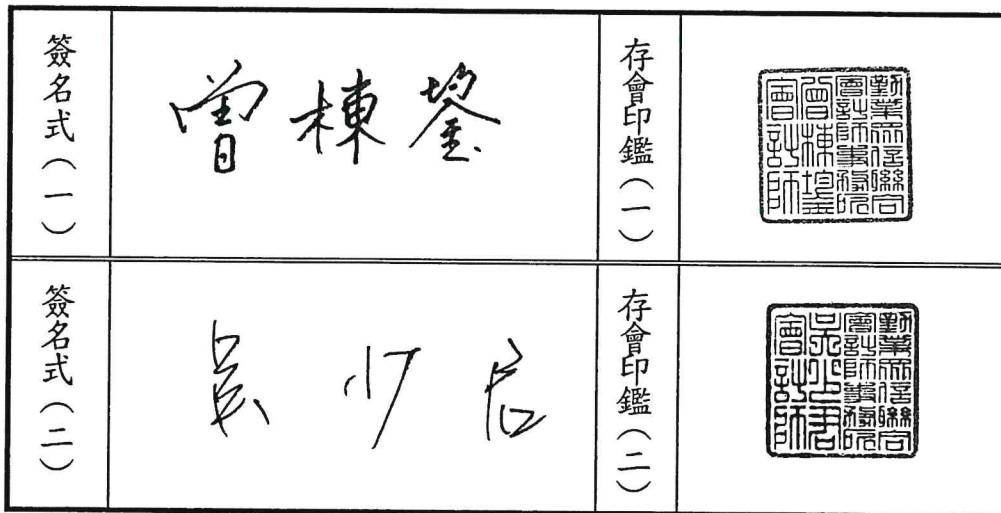 簽名式（一）
曾棟鋆
存會印鑑（一）
勤業眾信聯合
會計師事務所
曾棟鋆
會計師
簽名式（二）
吳少君
存會印鑑（二）
勤業眾信聯合
會計師事務所
吳少君
會計師